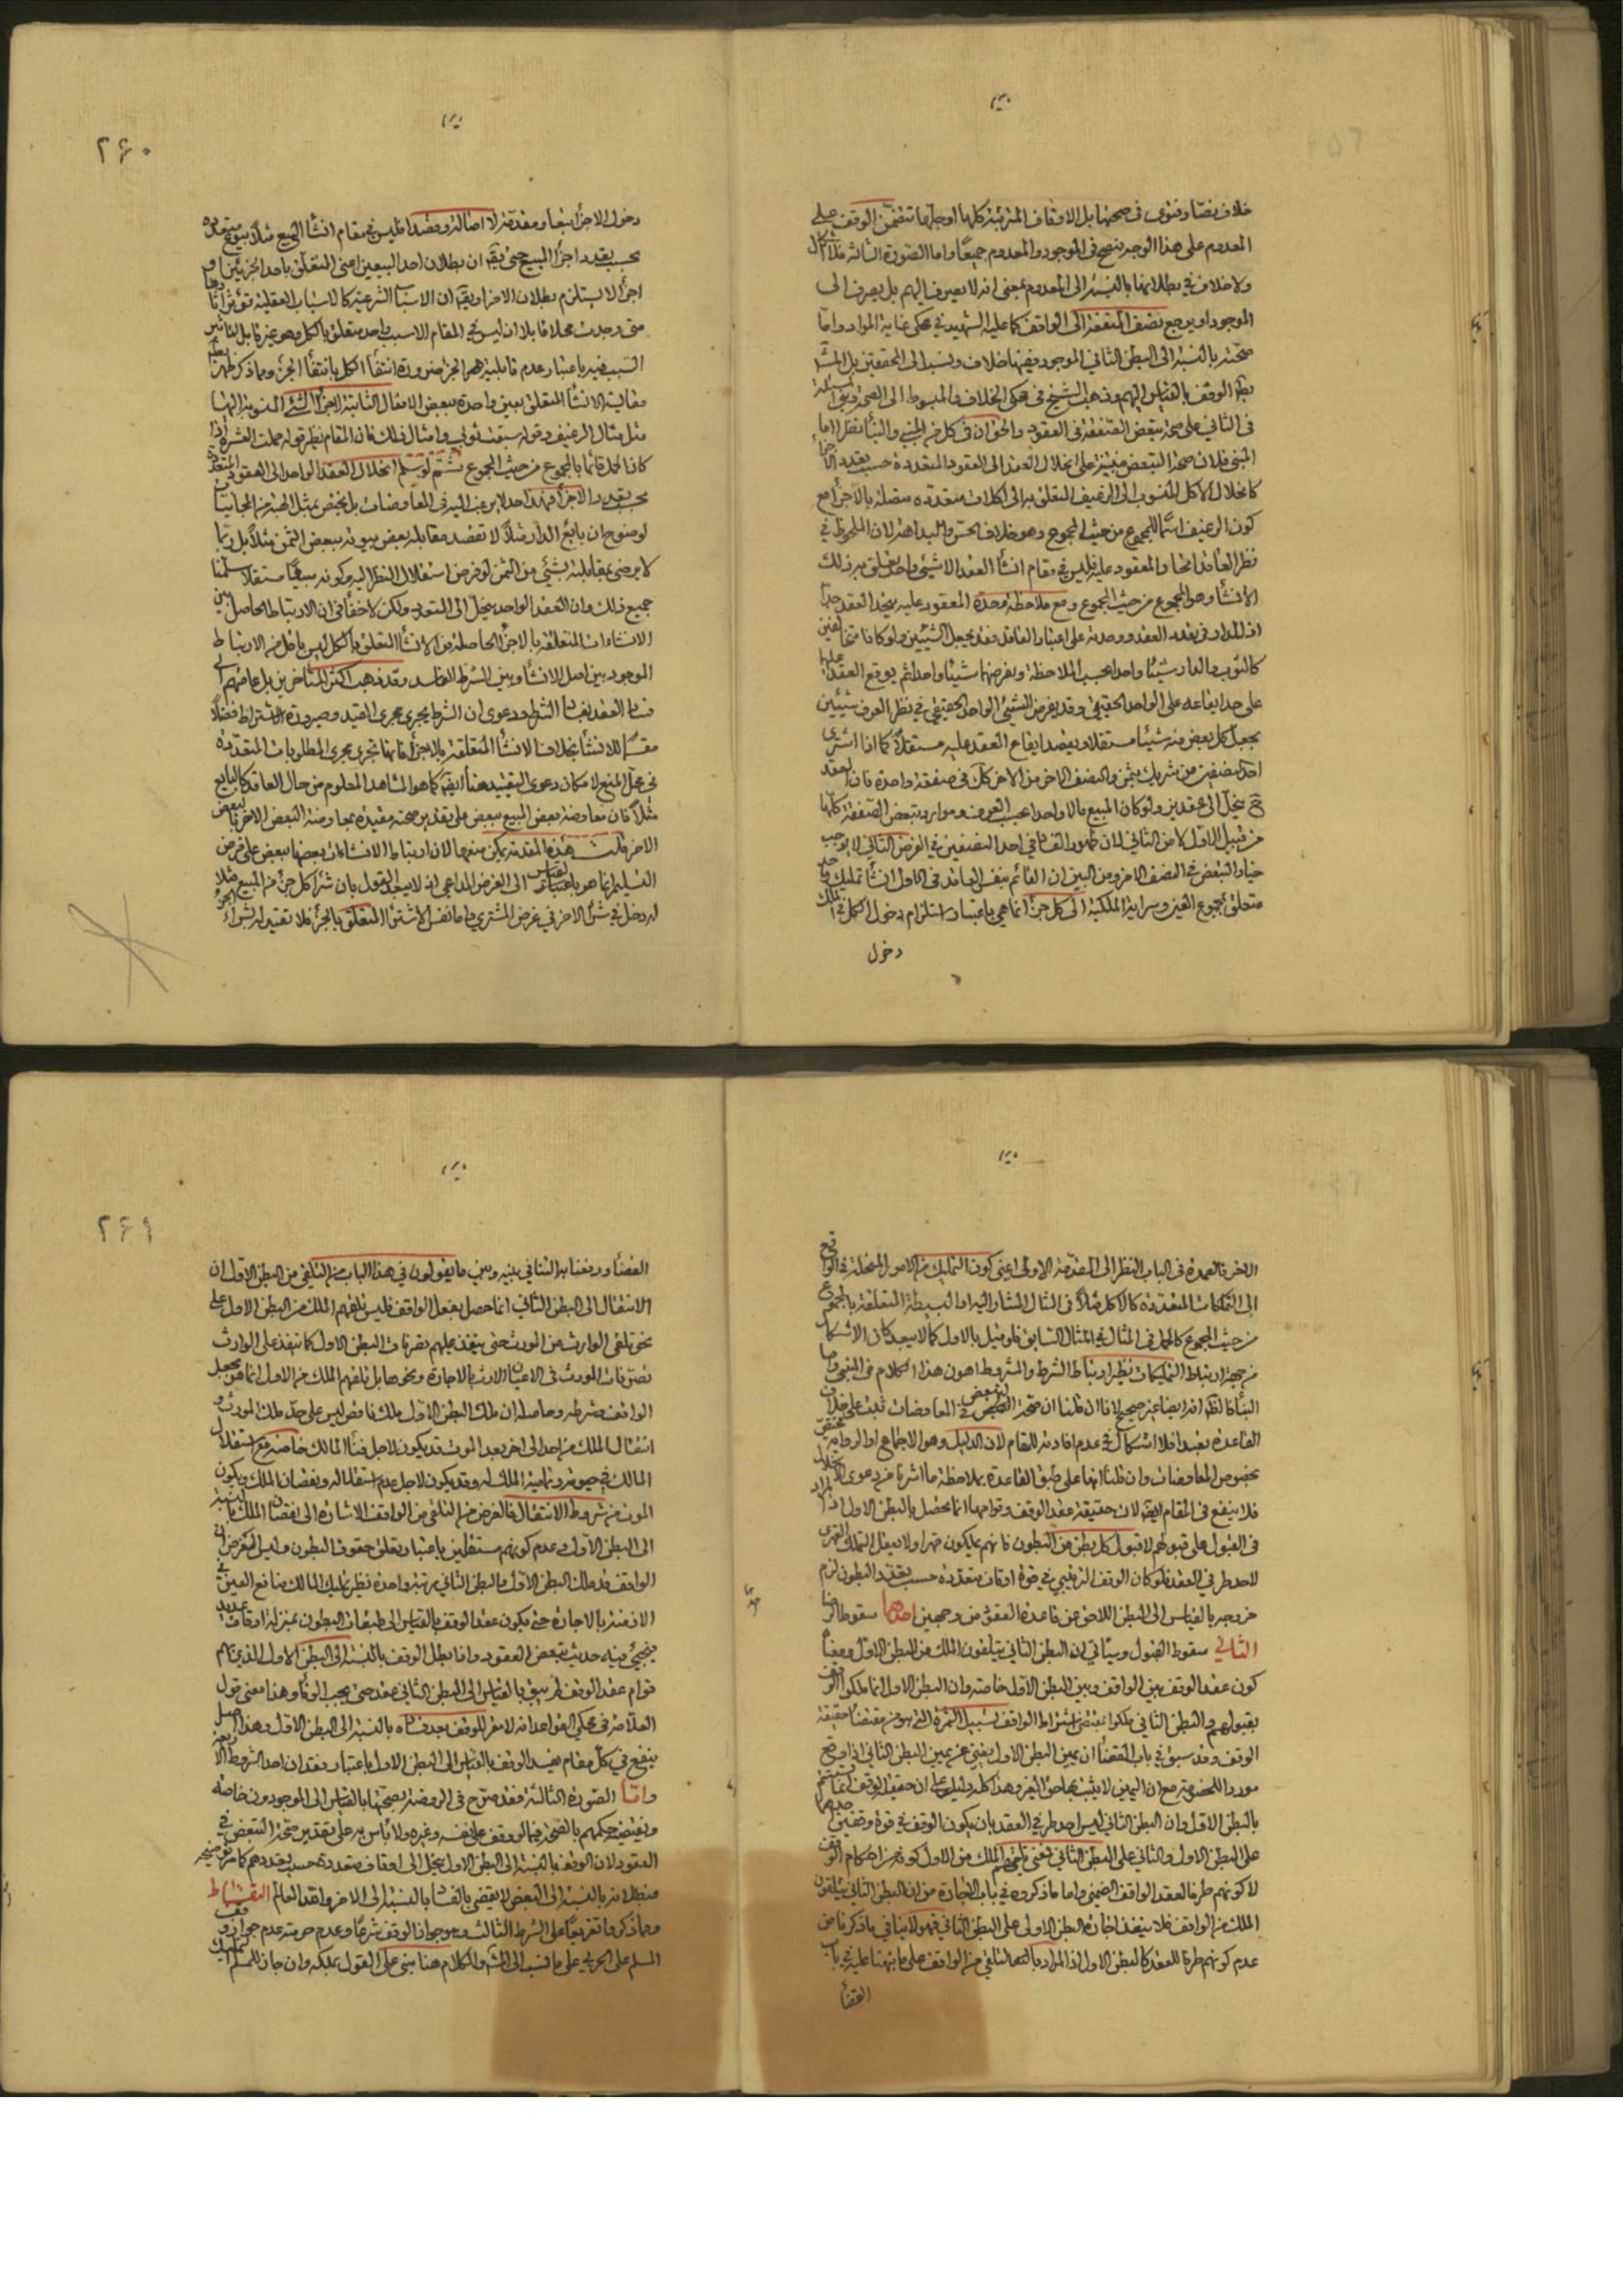 خلاف نصّا وفتوى في صحتها بل الاوقاف المترتبة كلها او جلّها تتضمّن الوقف على
المعدوم على هذا الوجه فيصح في الموجود والمعدوم جميعًا واما الصورة الثالثة فلا اشكال
ولا خلاف في بطلانها بالنسبة الى المعدوم بمعنى انه لا يصرف اليهم بل يصرف الى
الموجود او يرجع نصف المنفعة الى الواقف كما عليه الشهيد في محكى غاية المراد وامّا
صحّته بالنسبة الى البطن الثاني الموجود ففيها خلاف ونسب الى المحققين بل المشهور
بطلان الوقف بالقياس اليهم وذهب الشيخ في محكى الخلاف والمبسوط الى الصحة وبنى المسئلة
في الثاني على صحة تبعض الصفقة في العقود والحق ان في كل من المبنى والبناء نظرا اما
المبنى فلان صحة التبعض مبنية على انحلال العقد الى العقود المتعددة حسب تعدد الاجزاء
كانحلال الاكل المنسوب الى الرغيف المتعلق به الى اكلات متعددة متصلة بالاجزاء مع
كون الرغيف اسمًا للمجموع من حيث المجموع وهو خلاف الحسّ والبداهة لان الملحوظ في
نظر العاقد انما والمعقود عليه فليس في مقام انشاء العقد الا شيئ واحد تعلق به ذلك
الانشاء وهو المجموع من حيث المجموع ومع ملاحظة وحدة المعقود عليه يتحد العقد جدا
اذ المدار في تعدد العقد ووحدته على اعتبار العاقد فقد يجعل الشيئين ولو كانا متخالفين
كالثوب والدار شيئا واحدا بحسب الملاحظة ويفرضهما شيئا واحدا ثم يوقع العقد عليها
على حد ايقاعه على الواحد الحقيقي وقد يفرض الشيئ الواحد الحقيقي في نظر العرف شيئين
بجعل كل بعض منه شيئا مستقلا ويقصد ايقاع العقد عليه مستقلا كما اذا اشترى
احد نصفيه من شريك بثمن والنصف الاخر من الاخر كل في صفقة واحدة فان العقد
ح ينحل الى عقدين ولو كان المبيع مالا واحدا بحسب العرف وموارد تبعض الصفقة كلها
من قبيل الاول لا من الثاني لان ظهور الفساد في احد النصفين في الفرض الثاني لا يوجب
خيار التبعض في النصف الاخر ومن البين ان القائم بنفس العاقد في الاول انشاء تمليك واحد
متعلق بمجموع العين وسراية الملكية الى كل جزء انما هي باعتبار استلزام دخول الكل في الملك
دخول
٢۶٠
دخول الاجزاء تبعا ومقدمة لا اصالة وقصدا فليس في مقام انشاء البيع مثلا بيوع متعددة
بحسب تعدد اجزاء المبيع حتى يقم ان بطلان احد البيعين اعنى المتعلق باحد الجزئين او
اجزاء لا يستلزم بطلان الاخر او يقم ان الاسباب الشرعية كالاسباب العقلية تؤثر اثارها
متى وجدت محلا قابلا اذ ليس في المقام الا سبب واحد متعلق بالكل وهو غير قابل لتاثير
السبب فيه باعتبار عدم قابلية بعض الجزء ضرورة انتفاء الكل بانتفاء الجزء ومما ذكر ظهر
مغايرة الانشاء المتعلق بعين واحدة لبعض الافعال الثابتة لاجزاء الشئ المنسوبة اليها
مثل مثال الرغيف وقوله سبقت ثوبي وامثال ذلك فان المقام نظير قوله حملت العشرة اذا
كان الحمل قائما بالمجموع من حيث المجموع ثم لو سلم انحلال العقد الواحد الى العقود المتعددة
بحسب تعدد الاجزاء فهذا احد لا يرغب اليه في المعاوضات بل يختص بمثل الهبة من المجانيات
لوضوح ان بائع الدار مثلا لا تقصد مقابلة بعض بيوته ببعض الثمن مثلا بل ربما
لا يرضى بمقابلته بشيئ من الثمن لو فرض استقلال النظر اليه وكونه مبيعًا مستقلا سلمنا
جميع ذلك وان العقد الواحد ينحل الى المتعدد ولكن لا خفاء في ان الارتباط الحاصل بين
الانشاءات المتعلقة بالاجزاء الحاصلة من الانشاء المتعلق بالكل ليس باقل من الارتباط
الموجود بين اصل الانشاء وبين الشرط الفاسد وقد ذهب اكثر المتاخرين بل عامتهم الى
فساد العقد بفساد الشرط ودعوى ان الشرط يجرى مجرى القيد وصيرورة الاشتراط فصلا
مقسما للانشاء بخلاف الانشاء المتعلقة بالاجزاء فانها تجرى مجرى المطلوبات المتعددة
في محل المنع لامكان دعوى التقييد هنا ايضا كما هو المشاهد المعلوم من حال العاقد كالبايع
مثلا فان معاوضة بعض المبيع ببعض على تقدير صحته مقيدة بمعاوضة البعض الاخر بالبعض
الاخر قلت هذه المقدمة يمكن منعها لان ارتباط الانشاءات بعضها ببعض على فرض
التسليم انما هو بالقياس الى الغرض الداعي اذ لا يبعد القول بان شراء كل جزء من المبيع مثلا
له دخل في شراء الاخر في غرض المشتري واما نفس الاشتراء المتعلق بالجزء فلا تقييد له بشراء الجزء
الاخر فالعمدة في الباب النظر الى المقدمة الاولى اعنى كون التمليك من الامور المنحلة في الواقع
الى التملكات المتعددة كالاكل مثلا في المثال المشار اليه او البسيطة المتعلقة بالمجموع
من حيث المجموع كالحمل في المثال في المثال السابق فلو قيل بالاول كما لا يبعد كان الاشكال
من جهة ارتباط التمليكات نظير ارتباط الشرط والمشروط اهون هذا الكلام في المبنى واما
البناء فالظاهر انه ايضا غير صحيح لانا ان قلنا ان صحة التبعض في المعاوضات ثبت على خلاف
القاعدة تعبدا فلا اشكال في عدم افادته للمقام لان الدليل وهو الاجماع او الرواية مختص
بخصوص المعاوضات وان قلنا انها على طبق القاعدة بملاحظة ما اشرنا من دعوى الانحلال
فلا ينفع في المقام ايضا لان حقيقة عقد الوقف وقوامها انما يحصل بالبطن الاول اذ المراد
في القبول على قبولهم لا قبول كل بطن من البطون فانهم يملكون قهرا ولا دخل التملك القهرى
لاحد طرفي العقد فلو كان الوقف الترتيبي في قوة اوقاف متعددة حسب تعدد البطون لزم
خروجه بالقياس الى البطن اللاحق عن قاعدة العقود من وجهين احدهما سقوط الرضا
الثاني سقوط القبول وسياتي ان البطن الثاني يتلقون الملك من البطن الاول ومعنى
كون عقد الوقف بين الواقف وبين البطن الاول خاصة وان البطن الاول انما ملكوا الوقف
بقبولهم والبطن الثاني ملكوا بمقتضى اشتراط الواقف لتسبيل الثمرة التي هو من مقتضيات حقيقة
الوقف وقد سبق في باب القضاء ان يمين البطن الاول يغني عن يمين البطن الثاني اذا وقع
موردا للخصومة مع ان اليمين لا يثبت بها حق الغير وهذا كله دليل على ان حقيقة الوقف انما تتقوم
بالبطن الاول وان البطن الثاني ليس احد طرفي العقد بان يكون الوقف في قوة وقفين احدهما
على البطن الاول والثاني على البطن الثاني فمعنى تلقيهم الملك من الاول كونه من احكام الوقف
لا كونهم طرفا لعقد الواقف الضمني واما ما ذكروه في باب الاجارة من ان البطن الثاني يتلقون
الملك من الواقف فلا ينفذ اجارة البطن الاولى على البطن الثاني فهو لا ينافي ما ذكرنا من
عدم كونهم طرفا للعقد كالبطن الاول اذ المراد بالتلقي من الواقف على ما نبهنا عليه في باب
القضاء
٢۶١
القضاء ودفعنا به التنافي بينه وبين ما يقولون في هذا الباب من التلقي من البطن الاول ان
الانتقال الى البطن الثاني انما حصل بفعل الواقف فليس تلقيهم الملك من البطن الاول على
نحو تلقي الوارث من المورث حتى ينفذ عليهم تصرفات البطن الاول كما تنفذ على الوارث
تصرفات المورث في الاعيان الارث بالاجارة ونحوها بل تلقيهم الملك من الاول انما هو بجعل
الواقف وشرطه وحاصله ان ملك البطن الاول ملك ناقص ليس على حد ملك المورث و
انتقال الملك من احد الى اخر بعد الموت قد يكون لاجل فناء المالك خاصة مع استقلال
المالك في حيوته وتمامية الملك له وقد يكون لاجل عدم استقلاله ونقصان الملك ويكون
الموت من شروط الانتقال فالغرض من التلقي من الواقف الاشارة الى نقصان الملك بالنسبة
الى البطن الاول وعدم كونهم مستقلين باعتبار تعلق حقوق البطون وليس الغرض ان
الواقف قد ملك البطن الاول والبطن الثاني مرتبة واحدة نظير تمليك المالك منافع العين في
الازمنة بالاجارة حتى يكون عقد الوقف بالقياس الى طبقات البطون بمنزلة اوقاف عديدة
فيجيئ فيه حديث تبعض العقود واذا بطل الوقف بالنسبة الى البطن الاول الذين بهم
قوام عقد الوقف لم يبق بالقياس الى البطن الثاني عقد حتى يجب الوفاء وهذا معنى قول
العلامة في محكي القواعد انه لا مقر للوقف بعد فساده بالنسبة الى البطن الاول وهذا اصل
ينفع في كل مقام يفسد الوقف بالقياس الى البطن الاول باعتبار فقدان احد الشروط الاربعة
وامّا الصورة الثالثة فقد صرح في الروضة بصحتها بالقياس الى الموجودين خاصة
ويقتضيه حكمهم بالصحة فيما لو وقف على نفسه وغيره ولا باس به على تقدير صحة التبعض في
العقود لان الوقف بالنسبة الى البطن الاول ينحل الى اوقاف متعددة حسب تعددهم كما مر توضيحه
فبطلانه بالنسبة الى البعض لا يقضى بالفساد بالنسبة الى الاخر والله العالم التقاط
ومما ذكروا تفريعًا على الشرط الثالث وهو جواز الوقف شرعا وعدم حرمته عدم جواز وقف
المسلم على الحربي على ما نسب الى المشهور والكلام هنا مبني على القول بملكه وان جاز للمسلم تمليك